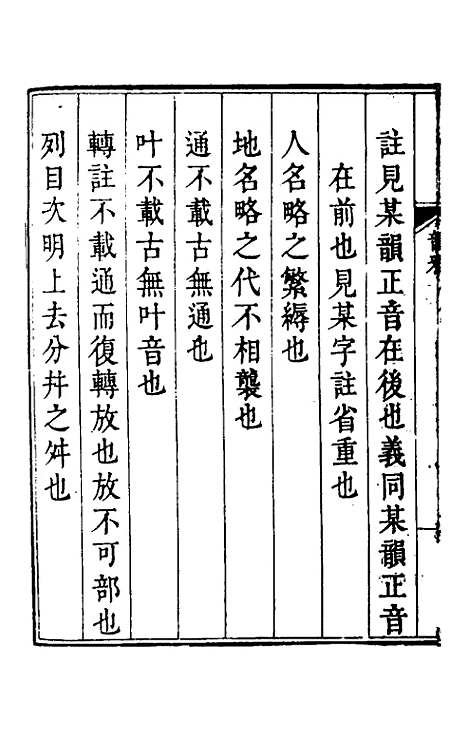 註見某韻正音在後也義同某韻正音
在前也見某字註省重也
人名略之繁縟也
地名略之代不相襲也
通不載古無通也
叶不載古無叶音也
轉註不載通而復轉放也放不可部也
列目次明上去分幷之舛也